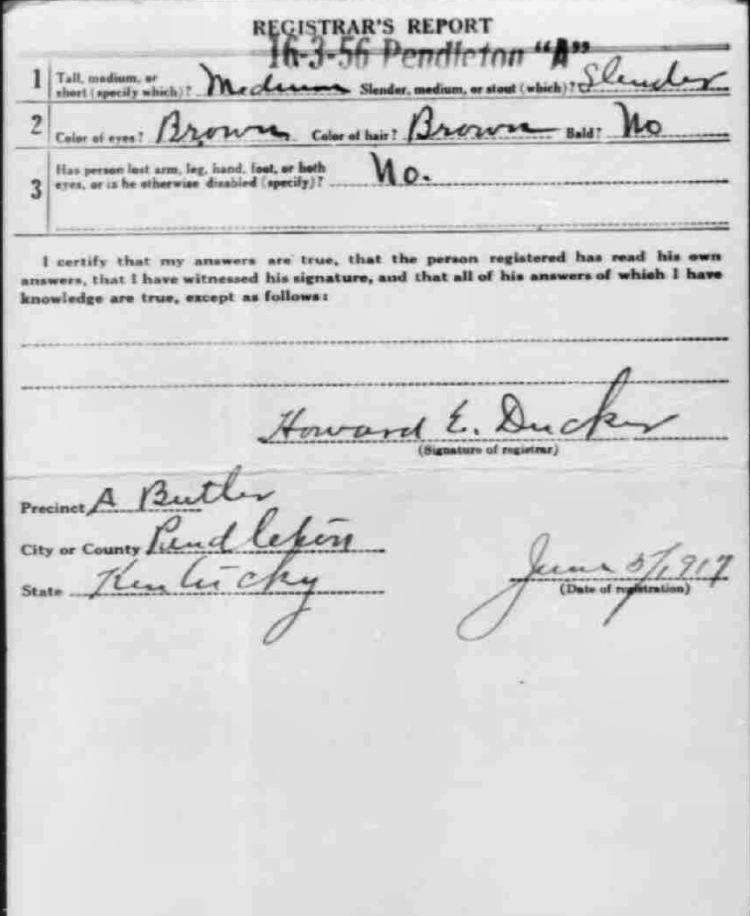 REGISTRAR'S REPORT
16-3-56 Pendleton "A"
1 Tall, medium, or short (specify which)? Medium Slender, medium, or stout (which)? Slender
2 Color of eyes? Brown Color of hair? Brown Bald? No
3 Has person lost arm, leg, hand, foot, or both
eyes, or is he otherwise disabled (specify)? No.
I certify that my answers are true, that the person registered has read his own
answers, that I have witnessed his signature, and that all of his answers of which I have
knowledge are true, except as follows:
Howard E. Ducker
(Signature of registrar)
Precinct A Butler
City or County Pendleton
State Kentucky
June 5/1917
(Date of registration)